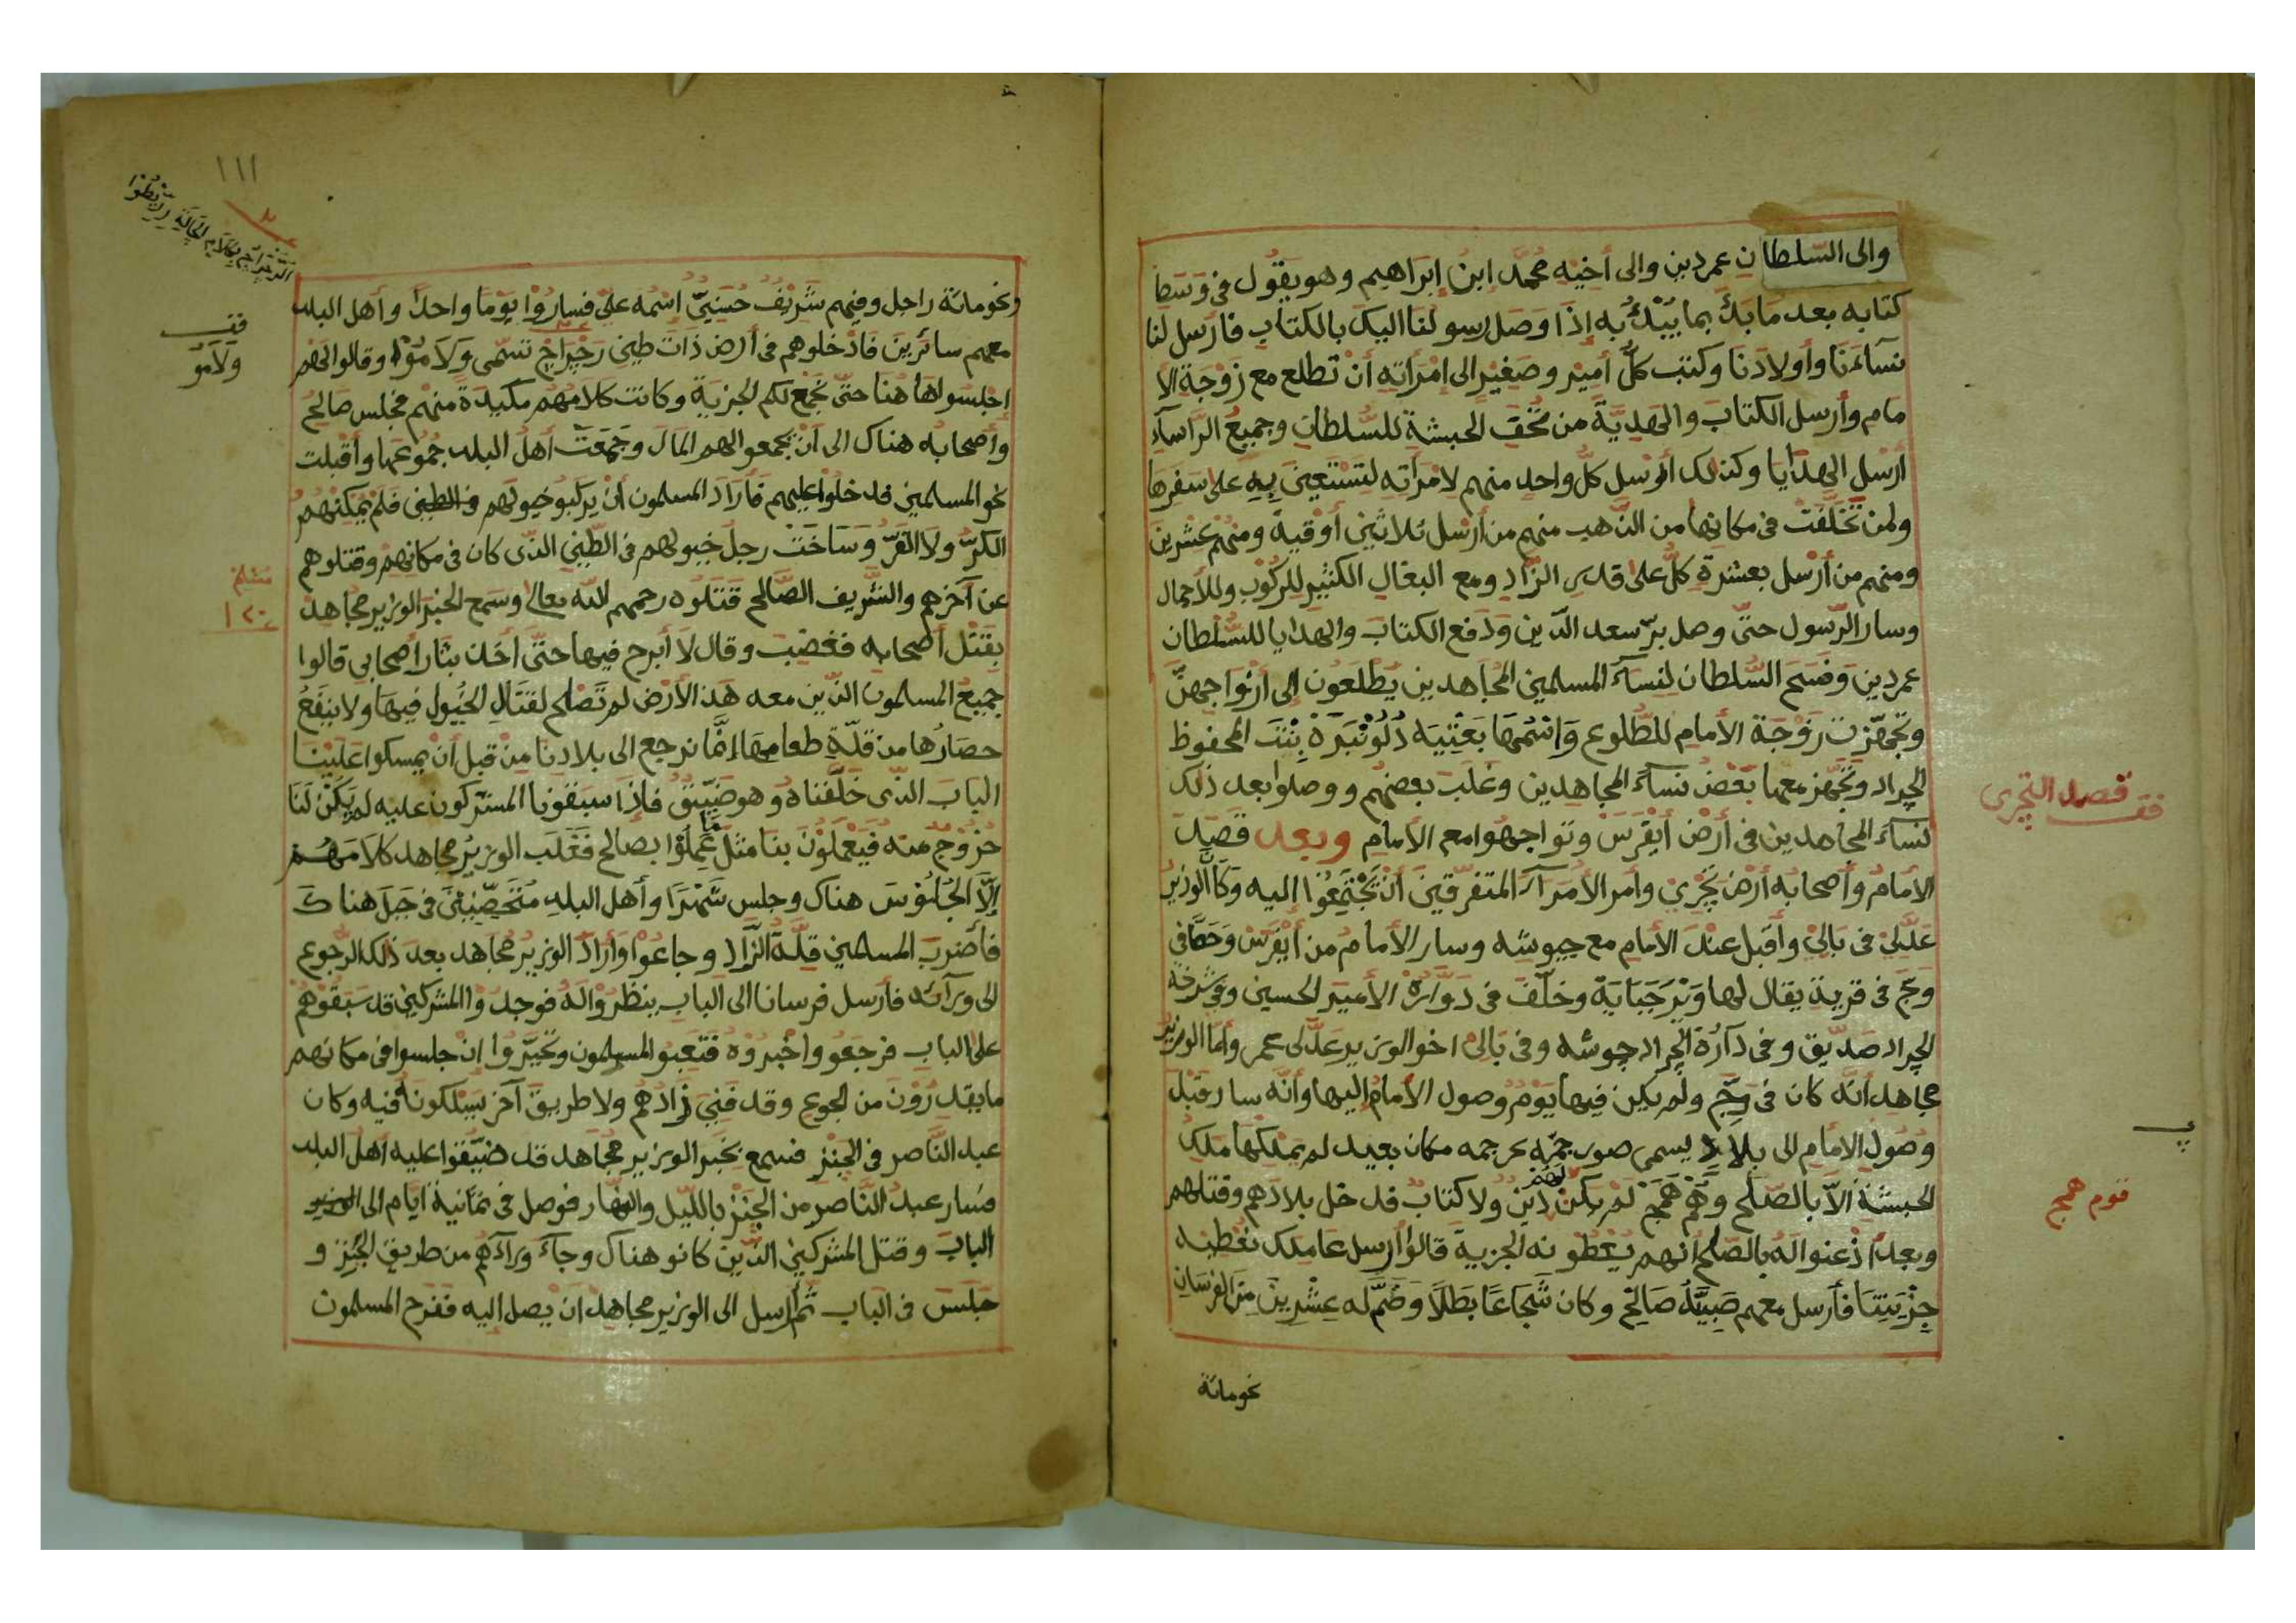 والى السّلطان عمردين والى أخيه محمّد ابن إبراهيم وهو يقول في وسط
كتابه بعد مابدك بما يبدك به إذا وصل رسولنا اليك بالكتاب فارسل لنا
نساءنا وأولادنا وكتب كلّ أمير وصغير الى امرأته أن تطلع مع زوجة الا
مام وأرسل الكتاب والهديّة من تحف الحبشة للسّلطان وجميع الرّاساء
ارسل الهدايا وكذلك ارسل كلّ واحد منهم لامرأته لتستعين به على سفرها
ولمن تخلّفت في مكانها من الذّهب منهم من أرسل ثلاثين أوقية ومنهم عشرين
ومنهم من أرسل بعشرة كلّ على قدر الزّاد ومع البغال الكثير للركوب وللأحمال
وسار الرّسول حتّى وصل برّ سعد الدّين ودفع الكتاب والهدايا للسّلطان
عمردين وفسح السّلطان لنساء المسلمين المجاهدين يطلعون إلى أزواجهنّ
وتجهّزت زوجة الأمام للطّلوع واسمها بعتيه دلونبره بنت المحفوظ
الجراد وتجهز معها بعض نساء المجاهدين وغلب بعضهم ووصلوا بعد ذلك
نساء المجاهدين في أرض أيفرس وتواجهوا مع الأمام وبعد قصد
فقـ قصد التجرى
الأمام وأصحابه أرض تجري وأمر الأمراء المتفرّقين أن تجتمعوا اليه وكان الوزير
عدّلى في بالي وأقبل عند الأمام مع جيوشه وسار الأمام من أيفرس وحطّ في
وج في قرية يقال لها وبرجباية وخلّف في دواره الأمير الحسين وفي شرخه
الجراد صدّيق وفي دآرة الجراد جوشه وفي بالي اخو الوزير عدّلى عمر وأما الوزير
مجاهد انّه كان في وج ولم يكن فيها يوم وصول الأمام إليها وأنّه سار قبل
وصول الأمام الى بلاد يسمى مكان بعيد لم يملكها ملك
الحبشة الّا بالصّلح وهم همج لم يكن لهم دين ولا كتاب فدخل بلادهم وقتلهم
قوم همج
وبعد اذعنوا له بالصّلح انهم يعطونه الجزية قالوا أرسل عاملك نعطيه
جزيتنا فأرسل معهم صبيّه صالح وكان شجاعا بطلا وضمّ له عشرين من الفرسان
نحو مائة
١١١
ونحو مائة راجل وفيهم شريف حسنيّ اسمه عليّ فساروا يوما واحدا وأهل البلد
معهم سائرين فادخلوهم في أرض ذات طين رجراج تسمّى ولامو وقالوا لهم
فقـ ولامو
إجلسوا هاهنا حتّى نجمع لكم الجزية وكانت كلامهم مكيدة منهم فجلس صالح
وأصحابه هناك الى أن يجمعوا الهم المال وجمعت أهل البلد جموعها وأقبلت
نحو المسلمين فدخلوا عليهم فأراد المسلمون أن يركبو خيولهم في الطين فلم يمكنهم
الكرّ ولا الفرّ وساخت رجل خيولهم في الطّين الذّى كان في مكانهم وقتلوهم
عن آخرهم والشّريف الصّالح قتلوه رحمهم اللّه تعالى وسمع الخبر الوزير مجاهد
بقتل أصحابه فغضب وقال لا أبرح فيها حتّى أخذ بثار أصحابي قالوا
جميع المسلمون الذّين معه هذا الأرض لم تصلح لقتال الخيول فيها ولا ينفع
حصارها من قلّة طعامها إنّما نرجع الى بلادنا من قبل أن يمسكوا علينا
الباب الذّى خلّفناه وهو ضيّق فإذا سبقونا المشركون عليه لم يكن لنا
خروج منه فيعملون بنا مثل ما عملوا بصالح فغلب الوزير مجاهد كلامهم
إلّا الجلوس هناك وجلس شهرا وأهل البلد متحصّنين في جبل هناك
فأضرب المسلمين قلّة الزّاد وجاعوا وأراد الوزير مجاهد بعد ذلك الرّجوع
الى ورآئه فأرسل فرسانا الى الباب ينظروا له فوجدوا المشركين قد سبقوهم
على الباب فرجعو واخبروه فتعبو المسلمون وتحيّروا إن جلسوا في مكانهم
مايقدرون من الجوع وقد فني زادهم ولا طريق آخر يسلكونه فيه وكان
عبد النّاصر في الجنز فسمع بخبر الوزير مجاهد قد ضيّقوا عليه أهل البلد
فسار عبد النّاصر من الجنز بالليل والنهار فوصل في ثمانية ايّام الى
الباب وقتل المشركين الذّين كانو هناك وجاء ورآءهم من طريق الجنز و
جلس في الباب ثمّ ارسل الى الوزير مجاهد ان يصل إليه ففرح المسلمون